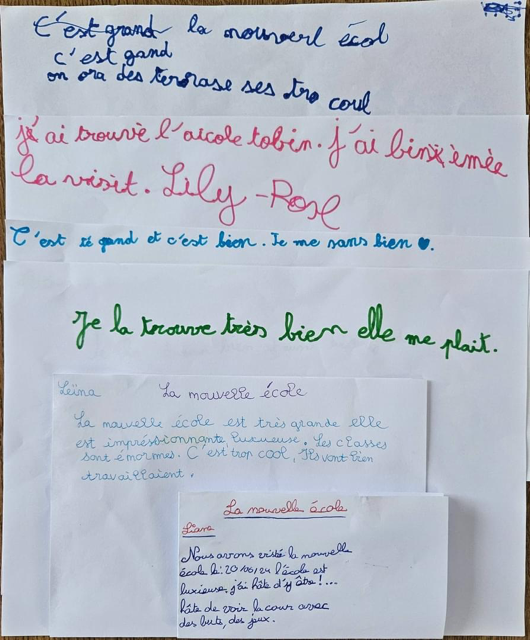 C'est grand la nouverl écol
c'est gand
on ora des terrase ses tro coul
j'ai trouvè l'aicole tobin. j'ai bin èmée
la visit. Lily-Rose
C'est gand et c'est bien. Je me sans bien ♥.
Je la trouve très bien elle me plait.
Leïna La nouvelle école
La nouvelle école est très grande elle
est impréssionnante, lucueuse. Les classes
sont énormes. C'est trop cool, Ils vont bien
travaillaient.
La nouvelle école
Liana
Nous avons visité la nouvelle
école le: 20/06/24 l'école est
luxieuse, j'ai hâte d'y être!...
hâte de voir la cour avec
des buts, des jeux.